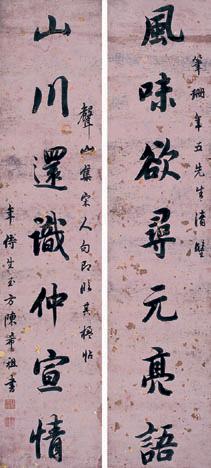 風味欲尋元亮語
筆珊年五先生清鑒
山川還識仲宣情
聲山集宋人句即臨其楷帖
年傅生玉方陳希祖書